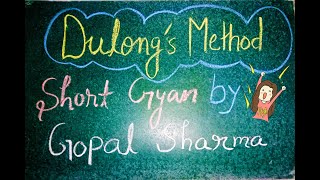 Dulong's Method
Short Gyan by
Gopal Sharma